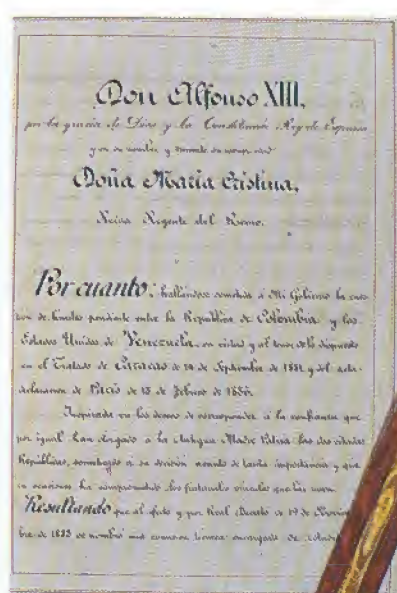 Don Alfonso XIII,
por la gracia de Dios y la Constitución Rey de España
y en su nombre y durante su menor edad
Doña María Cristina,
Reina Regente del Reino.
Por cuanto; hallándose sometida á Mi Gobierno la cues
tión de límites pendiente entre la República de Colombia y los
Estados Unidos de Venezuela, en virtud y al tenor de lo dispuesto
en el Tratado de Caracas de 14 de Septiembre de 1881 y del acta-
declaración de París de 15 de Febrero de 1886;
Inspirada en los deseos de corresponder á la confianza que
por igual han otorgado á la Antigua Madre Patria las dos citadas
Repúblicas, sometiendo á su decisión asunto de tanta importancia y que
en ocasiones ha comprometido los fraternales vínculos que las unen.
Resultando que al efecto y por Real Decreto de 19 de Noviem
bre de 1883 se nombró una comisión técnica encargada de